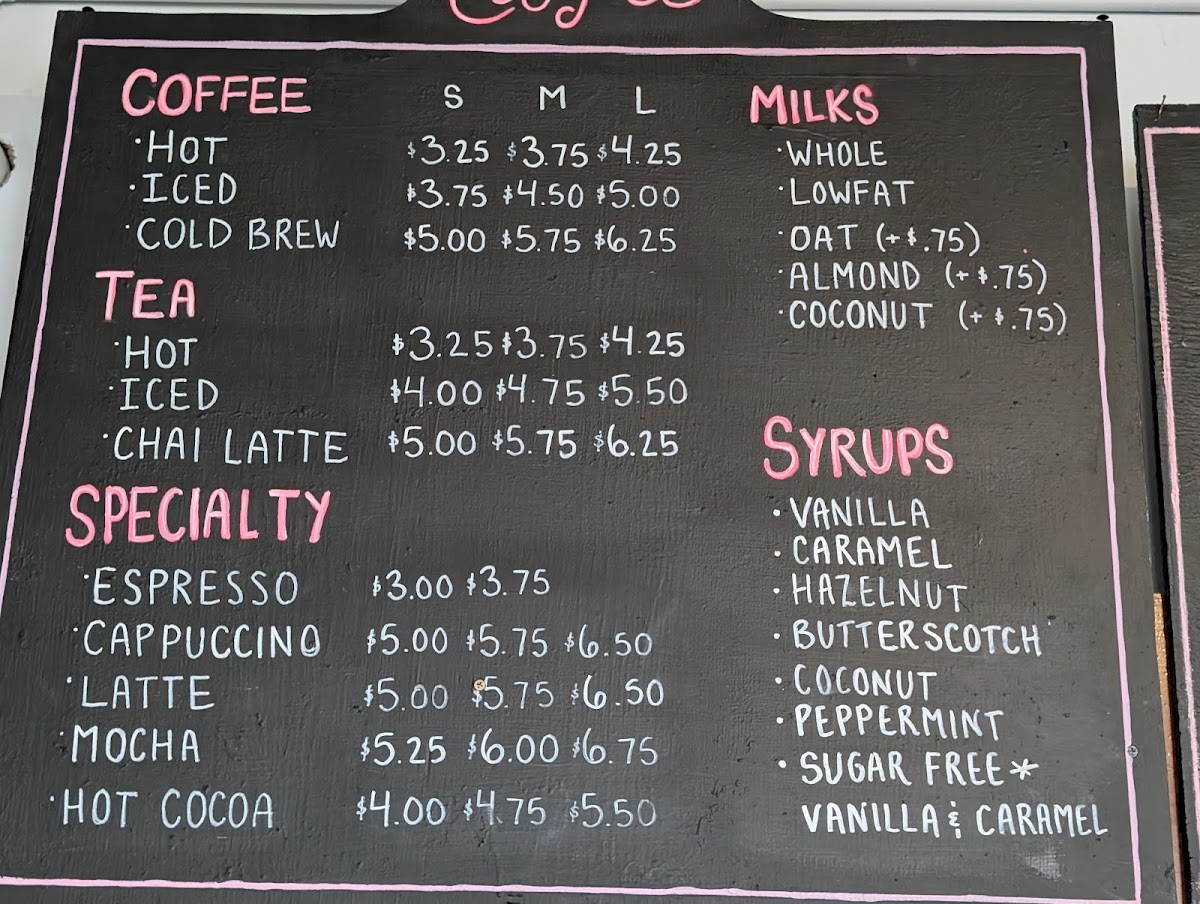 COFFEE S M L
·HOT $3.25 $3.75 $4.25
·ICED $3.75 $4.50 $5.00
·COLD BREW $5.00 $5.75 $6.25
TEA
·HOT $3.25 $3.75 $4.25
·ICED $4.00 $4.75 $5.50
·CHAI LATTE $5.00 $5.75 $6.25
SPECIALTY
·ESPRESSO $3.00 $3.75
·CAPPUCCINO $5.00 $5.75 $6.50
·LATTE $5.00 $5.75 $6.50
·MOCHA $5.25 $6.00 $6.75
·HOT COCOA $4.00 $4.75 $5.50
MILKS
·WHOLE
·LOWFAT
·OAT (+$.75)
·ALMOND (+$.75)
·COCONUT (+$.75)
SYRUPS
·VANILLA
·CARAMEL
·HAZELNUT
·BUTTERSCOTCH
·COCONUT
·PEPPERMINT
·SUGAR FREE*
VANILLA & CARAMEL